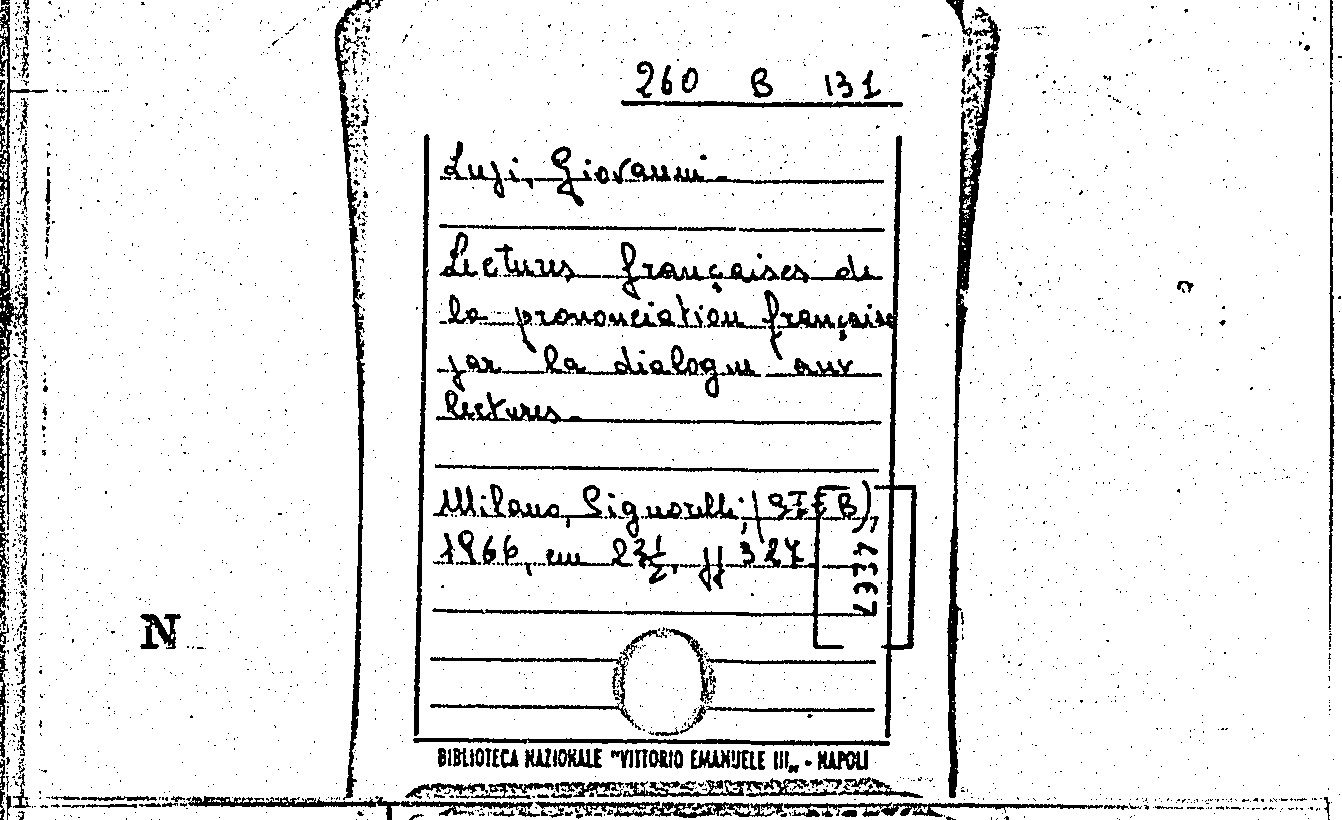 260 B 131
Lugi, Giovanni.
Lectures françaises de
la prononciation française
par la dialogue aux
lectures.
Milano, Signorelli, (STEB),
1966, cm 22½, pp 327
N
BIBLIOTECA NAZIONALE "VITTORIO EMANUELE III„ - NAPOLI